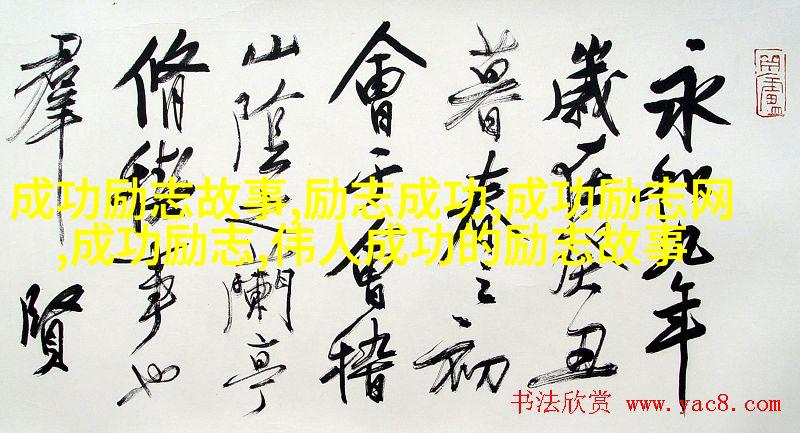 永和九年
歲在癸丑
暮春之初
會于會稽
山陰之蘭亭
脩禊事也
羣賢
成功励志故事,励志成功,成功励志网
,成功励志,伟人成功的励志故事
书法欣赏 www.yac8.com